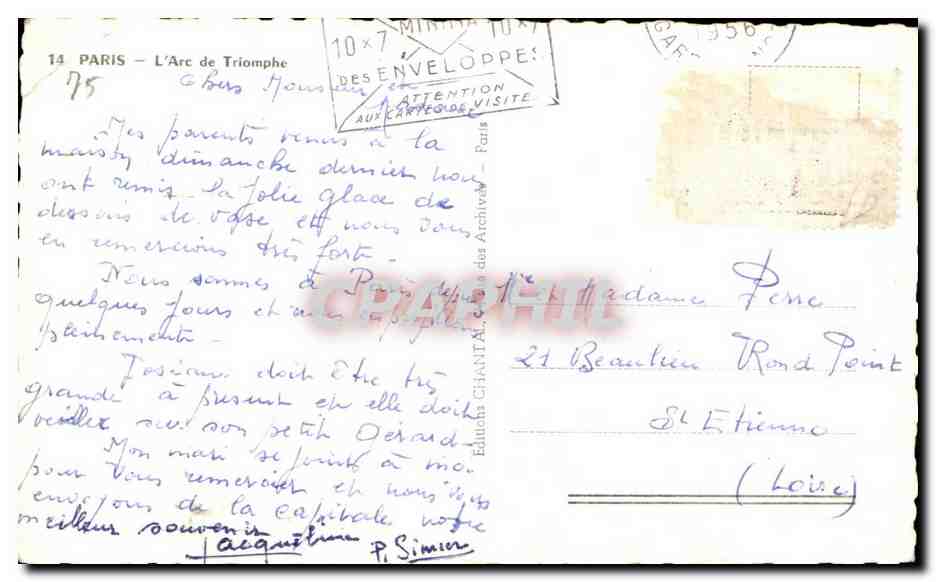 14 PARIS — L'Arc de Triomphe
75
MINIMA
10 x 7 10 x 7
DES ENVELOPPES
ATTENTION
AUX CARTES DE VISITE
1956
GARE
Chers Monsieur et
Madame
Mes parents venus à la
maison dimanche dernier nous
ont remis la jolie glace de
dessous de vase et nous vous
en remercions très fort.
Nous sommes à Paris depuis
quelques jours et
Josiane doit être très
grande à présent et elle doit
veiller sur son petit Gérard.
Mon mari se joint à moi
pour vous remercier et nous vous
envoyons de la capitale notre
meilleur souvenir
Jacqueline P. Simier
Editions CHANTAL, des Archives - Paris
CPAPHIL
Mr et Madame Perre
21 Beaulieu Rond Point
St Etienne
(Loire)